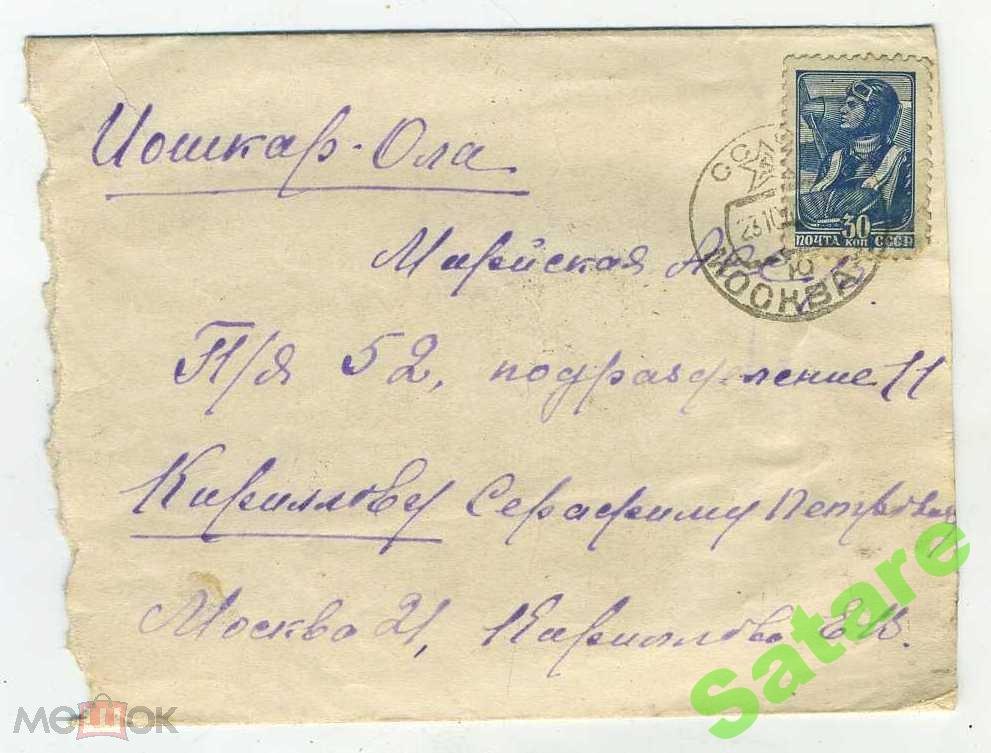 Йошкар-Ола
Марийская АССР
П/я 52, подразделение 11
Кириллову Серафиму Петровичу
Москва 21, Кириллова Е.В.
30
ПОЧТА КОП СССР
МОСКВА
Satare
мешок